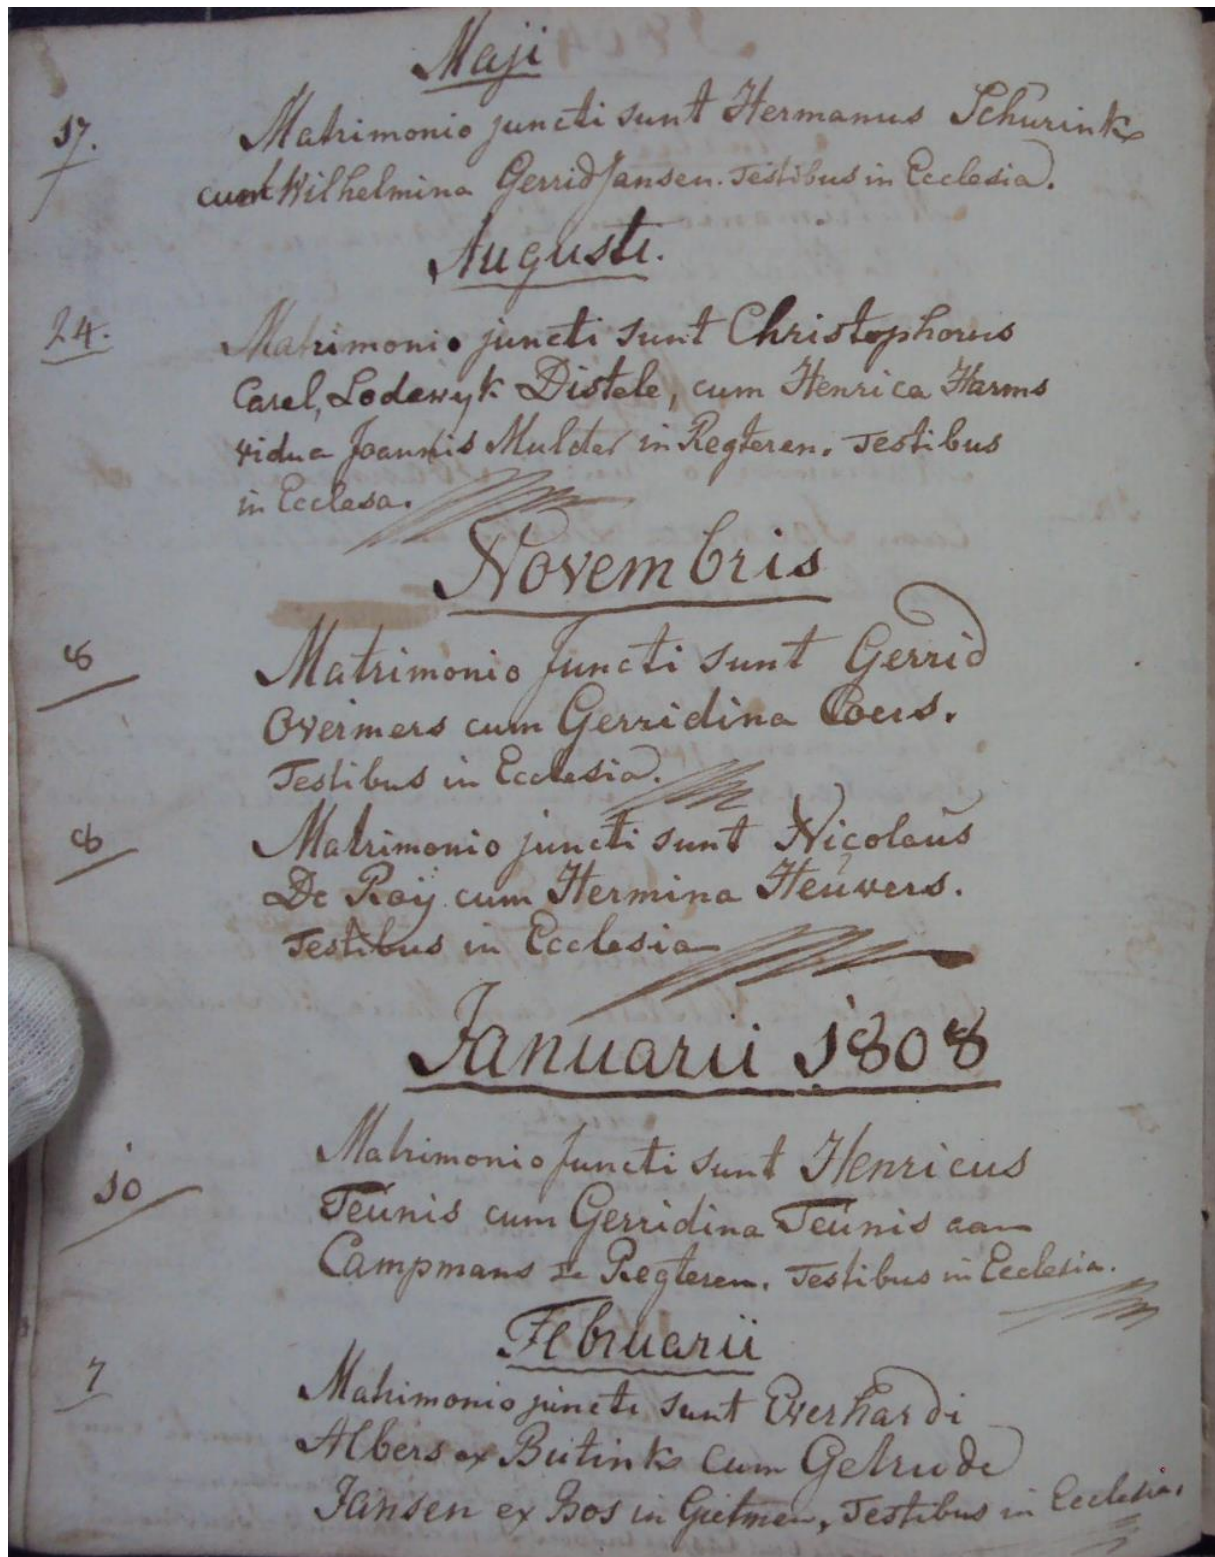 Maji
17. Matrimonio juncti sunt Hermanus Schurink
cum Wilhelmina Gerrid Jansen. Testibus in Ecclesia.
Augusti.
24. Matrimonio juncti sunt Christophorus
Carel, Lodewyk Distele, cum Henrica Harms
vidua Joannis Mulder in Regteren. Testibus
in Ecclesa.
Novembris
8 Matrimonio Juncti sunt Gerrid
Overmers cum Gerridina Coers.
Testibus in Ecclesia.
8 Matrimonio juncti sunt Nicolaus
De Roij cum Hermina Heuvers.
Testibus in Ecclesia
Januarii 1808
10 Matrimonio Juncti sunt Henricus
Teunis cum Gerridina Teunis aan
Campmans Regteren. Testibus in Ecclesia.
Februarii
7 Matrimonio juncti sunt Everhardi
Albers ex Butink cum Getrude
Jansen ex Bos in Gietmen, Testibus in Ecclesia.